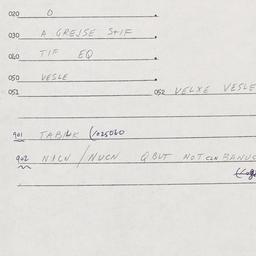 020 O
030 A GREJSE STIF
060 TIF EQ
050 VESLE
051 052 VELXE VESLE
901 TABLK (1025060
902 NICN / NUCN QBUT NOT.CLN BANUC